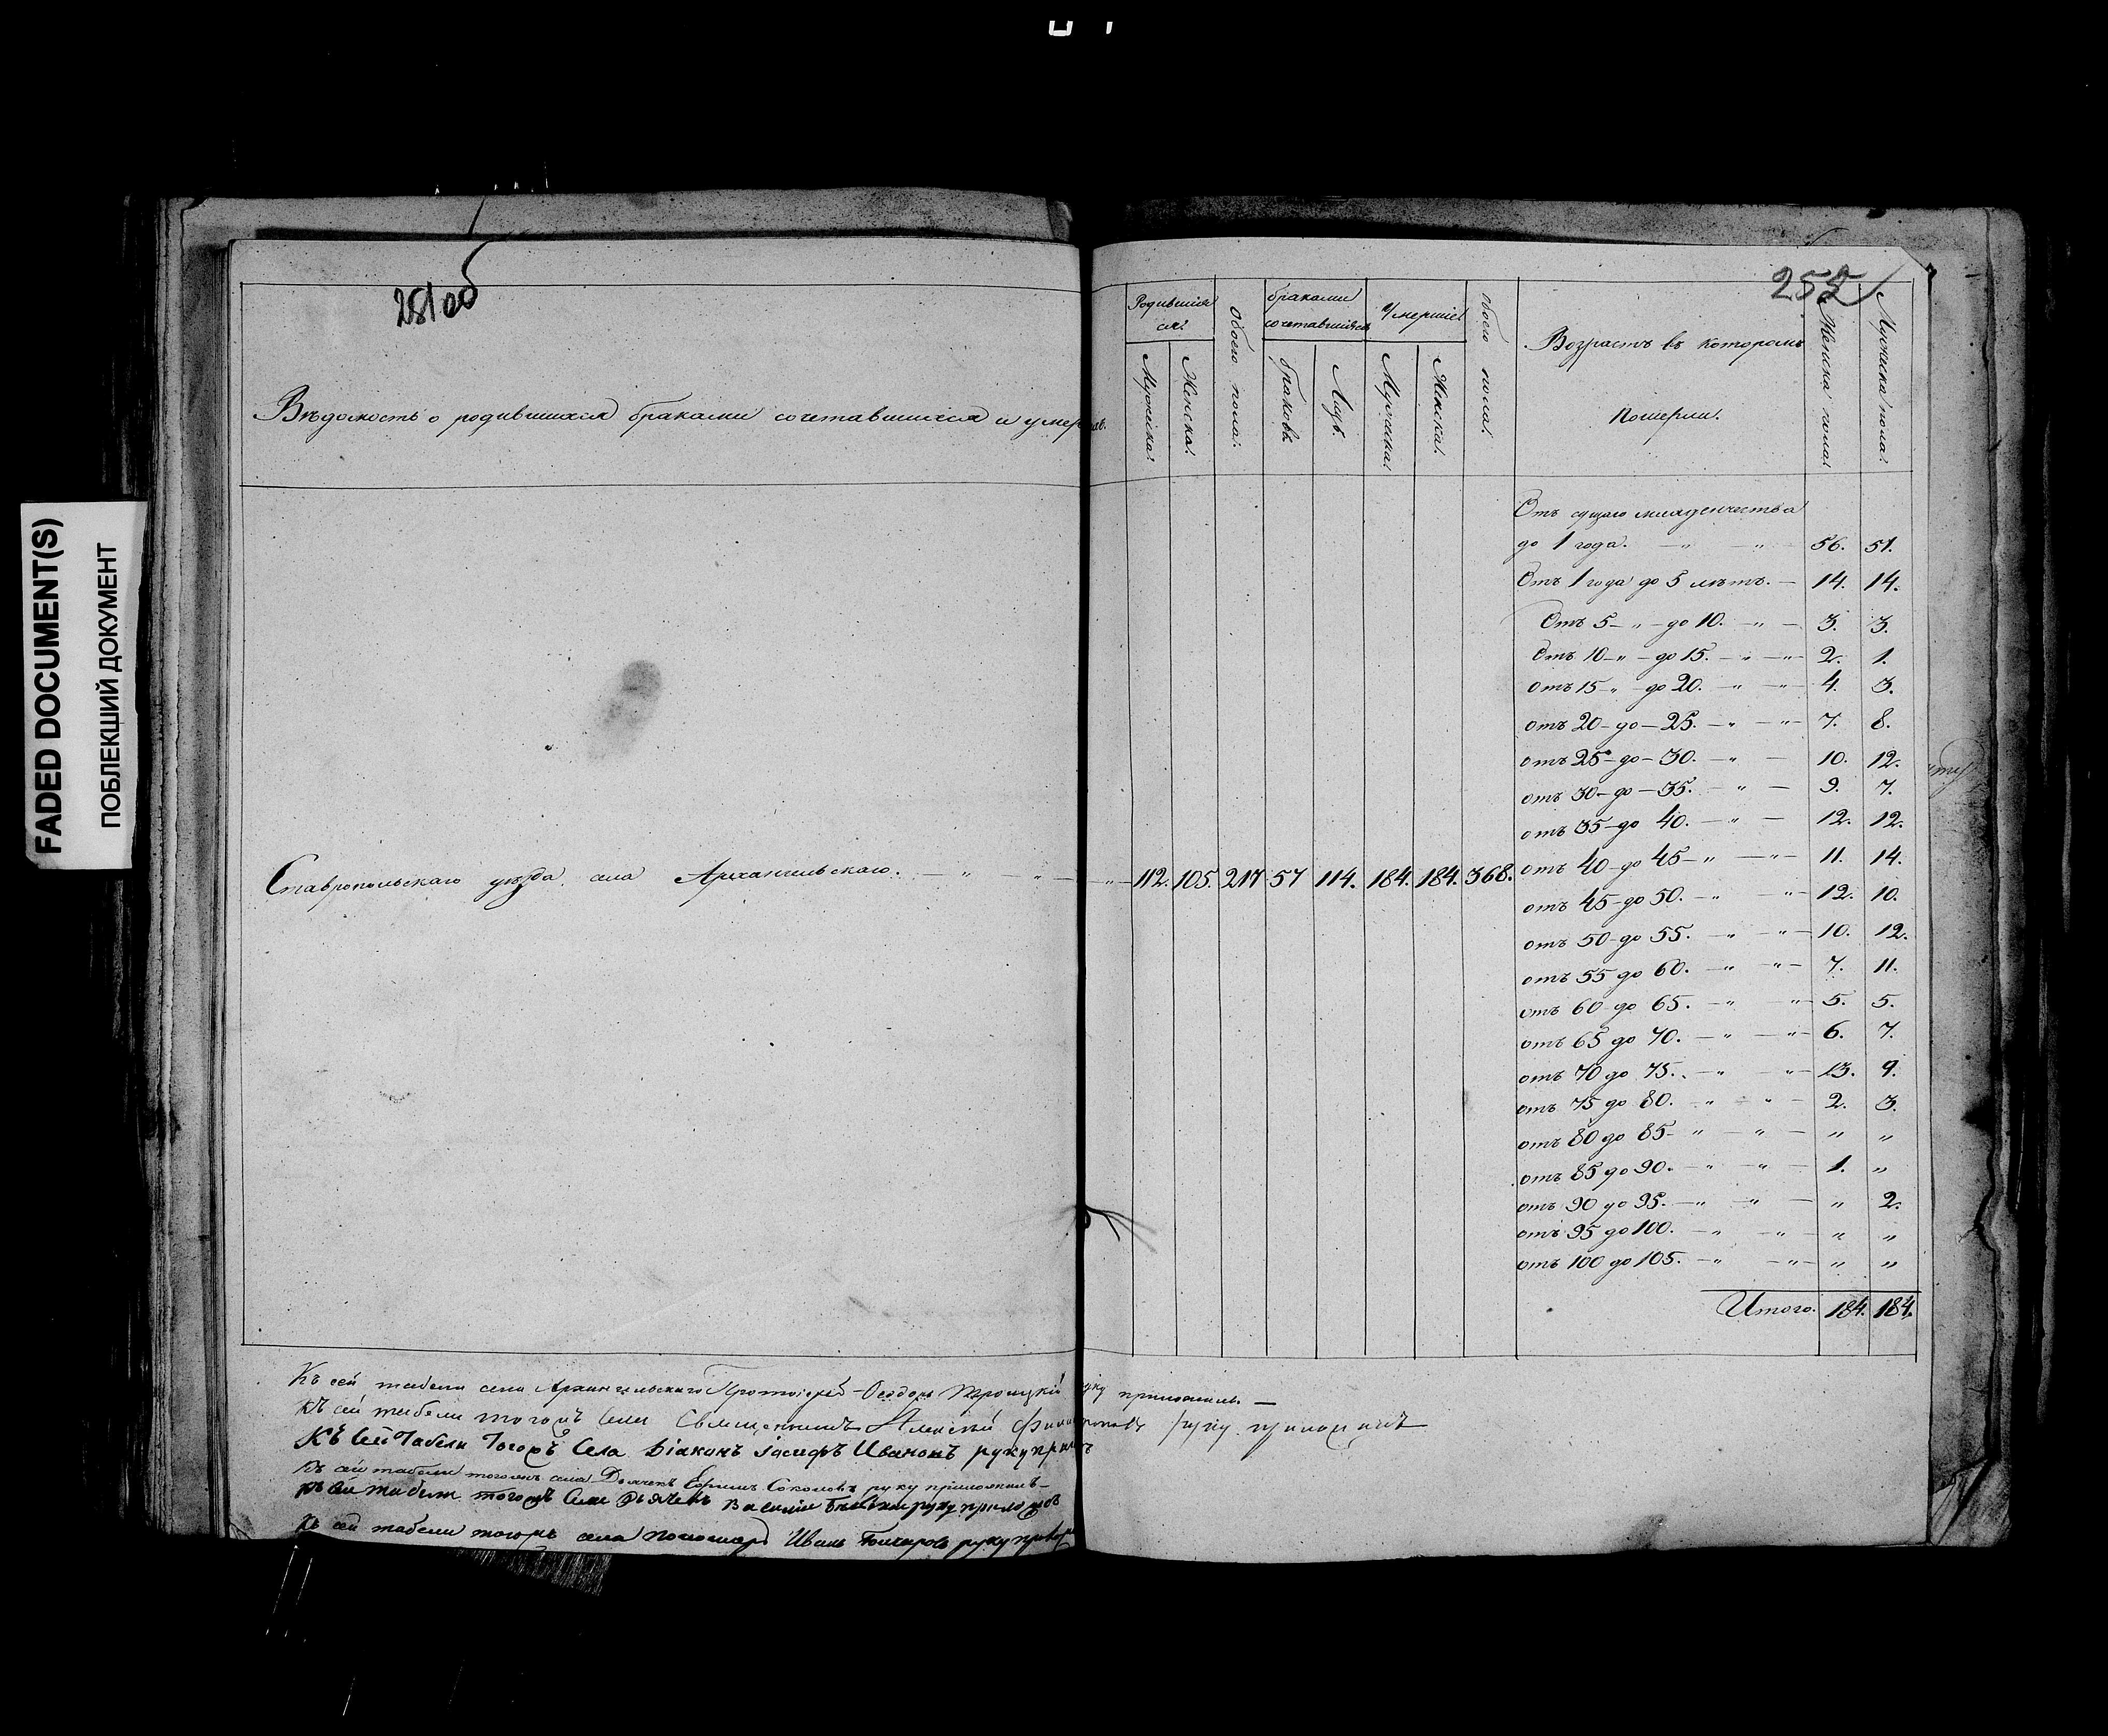 FADED DOCUMENT(S)
ПОБЛЕКШИЙ ДОКУМЕНТ
251об
Вѣдомость о родившихся браками сочетавшихся и умер
Ставропольскаго уѣзда села Архангельскаго. — „ — „ —
Къ сей табели села Архангельскаго Протоіерей Ѳеодоръ Троицкій руку приложилъ. —
Къ сей табели тогожъ села Священникъ Алексѣй руку приложилъ
Къ сей Табели Тогожъ Села Діаконъ Іосифъ Ивановъ руку прил
Къ сей табели тогожъ села Дьячекъ Ефимъ Соколовъ руку приложилъ —
Къ сей табели тогожъ села Дьячекъ Василій руку приложилъ
Къ сей табели тогожъ села пономарь Иванъ Гончаровъ руку
252
Родившія
ся:
Обоего пола:
браками
сочетавшіяся
Умершіе:
Обоего пола:
Возрастъ въ которомъ
Померли.
Женска пола:
Мужска пола:
Мужска:
Женска:
браковъ
Лицъ.
Мужска:
Женска:
112. 105. 217 57 114. 184. 184. 368.
Отъ сущаго младенчества
до 1 года. — „ — „ — 56. 51.
Отъ 1 года до 5 лѣтъ. — 14. 14.
Отъ 5 — „ — до 10. — „ — 3. 3.
Отъ 10 — „ — до 15. — „ — „ — 2. 1.
отъ 15 „ — до 20. — „ — „ — 4. 3.
отъ 20 — до — 25. — „ — „ — 7. 8.
отъ 25 — до — 30. — „ — 10. 12.
отъ 30 — до — 35. — „ — 9. 7.
отъ 35 — до 40. — „ — 12. 12.
отъ 40 — до 45 — „ — „ — 11. 14.
отъ 45 — до 50. — „ — „ — 12. 10.
отъ 50 — до 55. — „ — „ — 10. 12.
отъ 55 до 60. — „ — „ — 7. 11.
отъ 60 до 65. — „ — „ — 5. 5.
отъ 65 до 70. — „ — „ — 6. 7.
отъ 70 до 75. — „ — „ — 13. 9.
отъ 75 до 80. — „ — „ — 2. 3.
отъ 80 до 85 — „ — „ — „ „
отъ 85 до 90. — „ — „ — 1. „
отъ 90 до 95. — „ — „ — „ 2.
отъ 95 до 100. — „ — „ — „ „
отъ 100 до 105. — „ — „ — „ „
Итого. 184. 184.